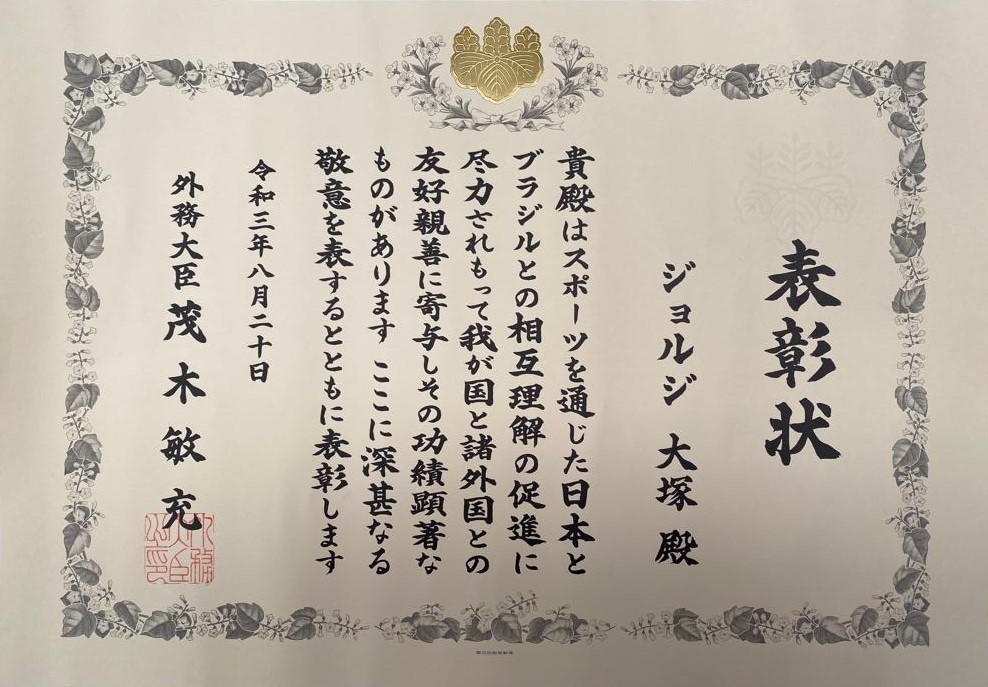 表彰状
ジョルジ 大塚 殿
貴殿はスポーツを通じた日本と
ブラジルとの相互理解の促進に
尽力されもって我が国と諸外国との
友好親善に寄与しその功績顕著な
ものがあります ここに深甚なる
敬意を表するとともに表彰します
令和三年八月二十日
外務大臣 茂木敏充